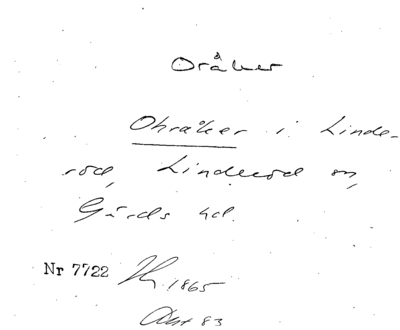 Oråker
Ohråker i Linde-
röd, Linderöd sn,
Gärds hd.
Nr 7722 1865
83